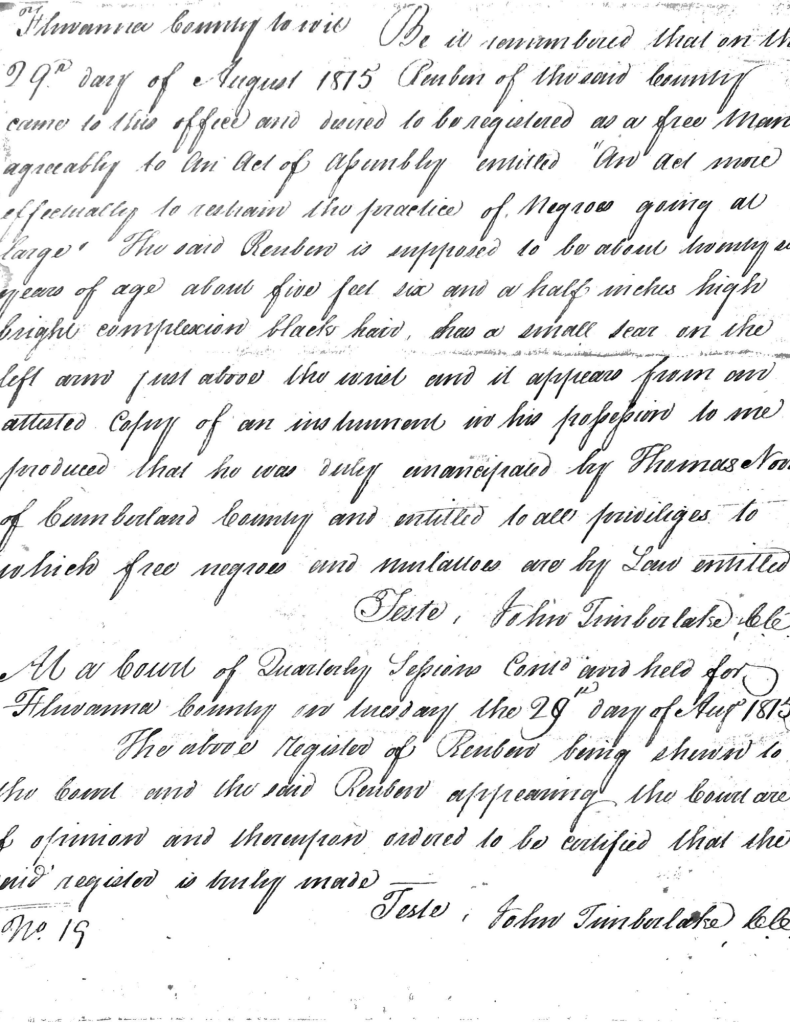 Fluvanna County to wit Be it remembered that on th
29th day of August 1815 Reuben of the said County
came to this office and desired to be registered as a free Man
agreeably to An Act of Assembly entitled "An Act more
effectually to restrain the practice of Negroes going at
large" The said Reuben is supposed to be about twenty
years of age about five feet six and a half inches high
bright complexion black hair, has a small scar on the
left arm just above the wrist and it appears from an
attested Copy of an instrument in his possession to me
produced that he was duly emancipated by Thomas
of Cumberland County and entitled to all priviliges to
which free negroes and mulattoes are by Law entitled
Teste, John Timberlake, Cle
At a Court of Quarterly Sessions Contd and held for
Fluvanna County on tuesday the 29th day of Augt 1815
The above register of Reuben being shewn to
the Court and the said Reuben appearing the Court are
f opinion and thereupon ordered to be certified that the
aid register is truly made
Teste, John Timberlake, Cle
No. 19